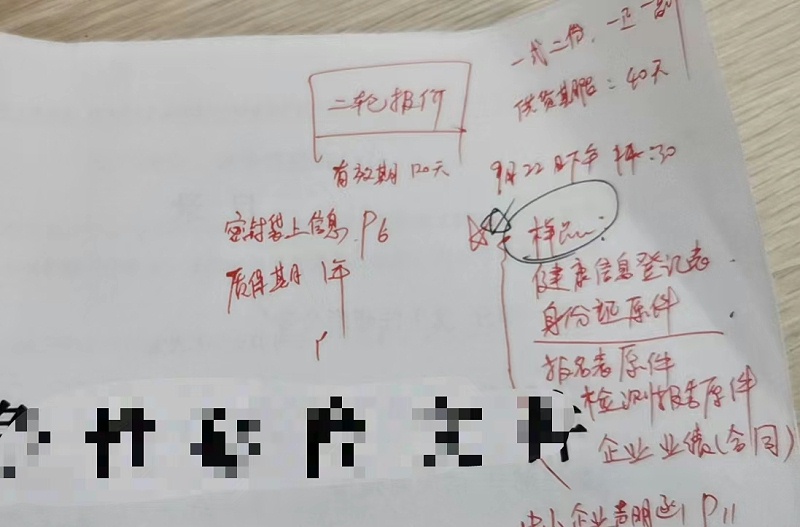 一式二份，一正一副
供货期：40天
二轮报价
有效期 120天
9月22日下午 14:30
密封袋上信息 P6
样品：
质保期 1年
健康信息登记表
身份证原件
报名表原件
检测报告原件
企业业绩(合同)
中小企业声明函 P11